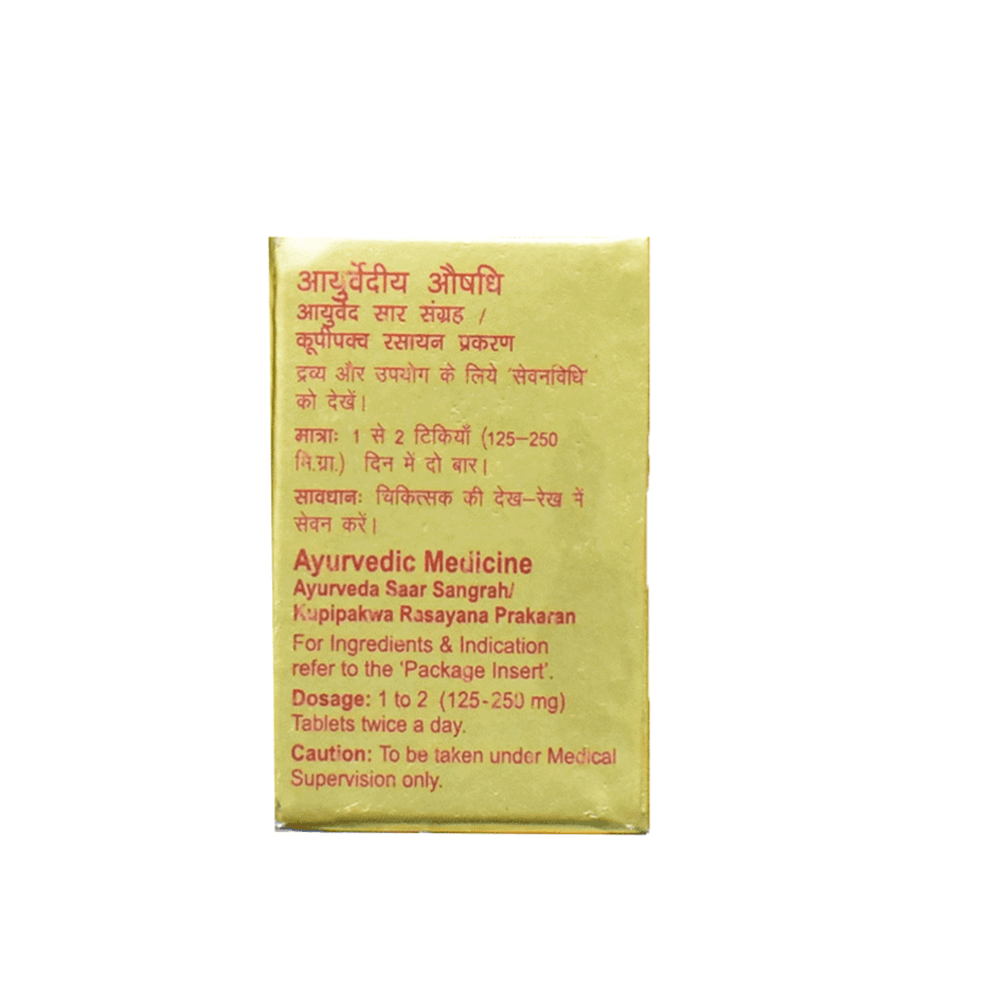 आयुर्वेदीय औषधि
आयुर्वेद सार संग्रह /
कूपीपक्व रसायन प्रकरण
द्रव्य और उपयोग के लिये 'सेवनविधि'
को देखें।
मात्राः 1 से 2 टिकियाँ (125–250
मि.ग्रा.) दिन में दो बार।
सावधानः चिकित्सक की देख–रेख में
सेवन करें।
Ayurvedic Medicine
Ayurveda Saar Sangrah/
Kupipakwa Rasayana Prakaran
For Ingredients & Indication
refer to the 'Package Insert'.
Dosage: 1 to 2 (125-250 mg)
Tablets twice a day.
Caution: To be taken under Medical
Supervision only.